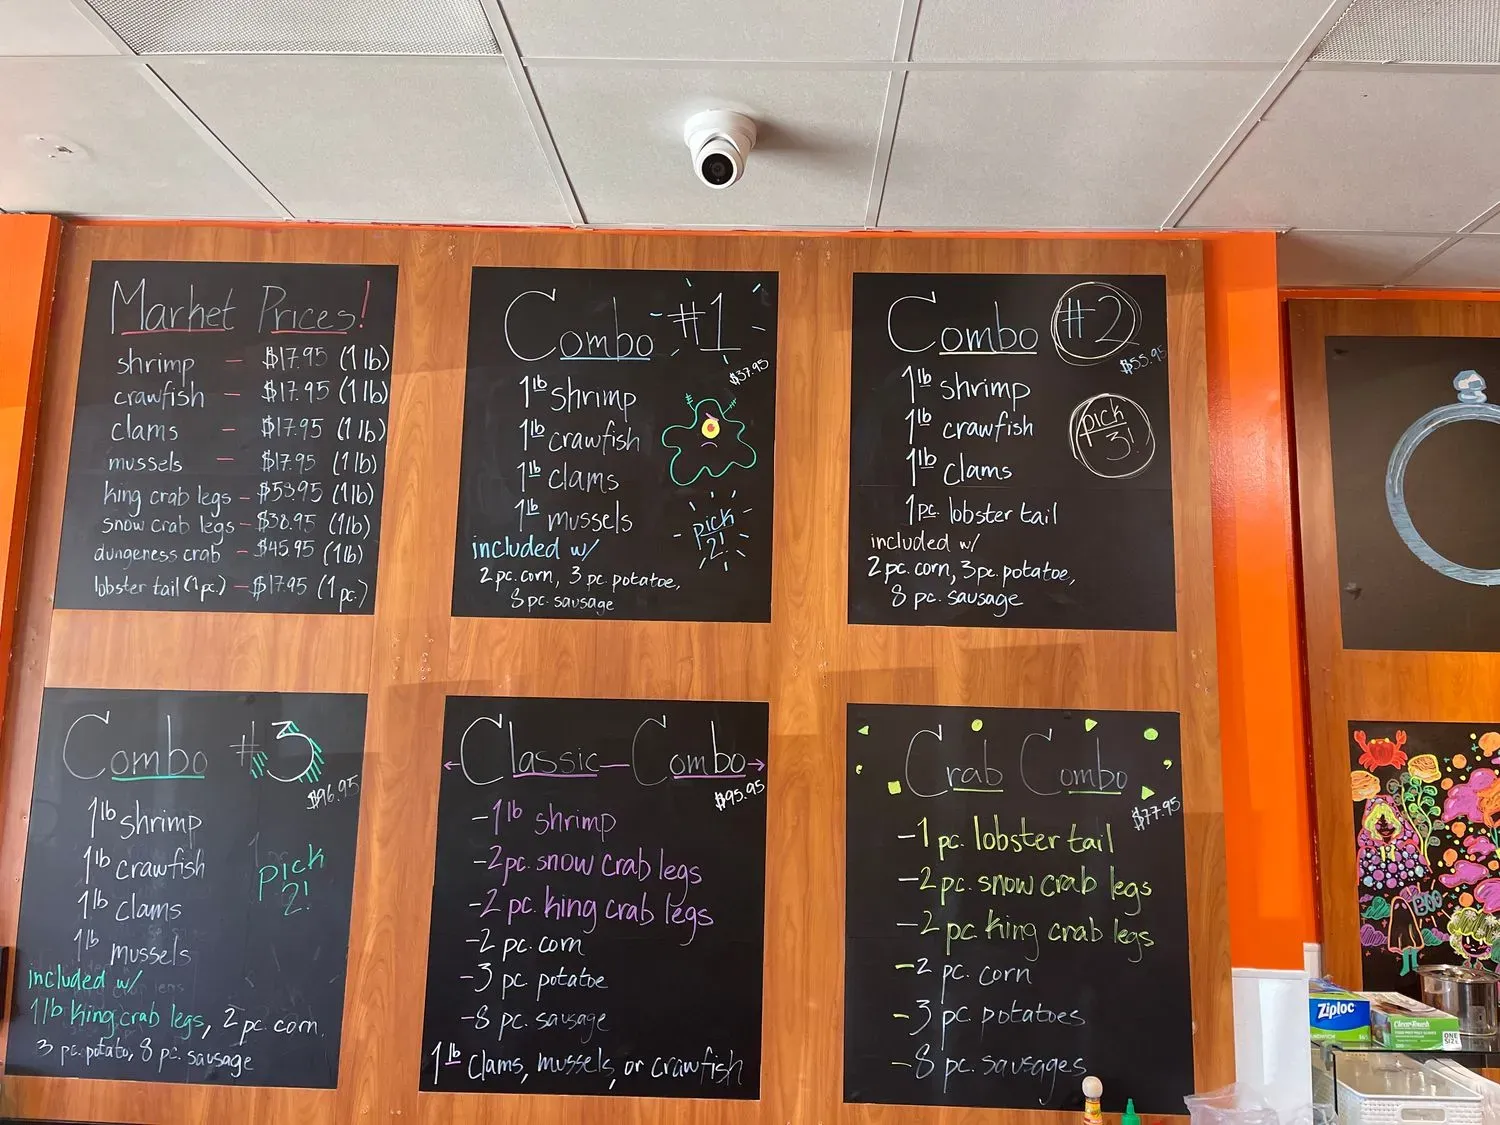 Market Prices!
shrimp - $17.95 (1 lb)
crawfish - $17.95 (1 lb)
clams - $17.95 (1 lb)
mussels - $17.95 (1 lb)
king crab legs - $53.95 (1 lb)
snow crab legs - $38.95 (1 lb)
dungeness crab - $45.95 (1 lb)
lobster tail (1 pc.) - $17.95 (1 pc.)
Combo #1
$37.95
1 lb shrimp
1 lb crawfish
1 lb clams
1 lb mussels
pick
2!
included w/
2 pc. corn, 3 pc. potatoe,
8 pc. sausage
Combo #2
$55.95
1 lb shrimp
1 lb crawfish
1 lb clams
1 pc. lobster tail
pick
3!
included w/
2 pc. corn, 3 pc. potatoe,
8 pc. sausage
Combo #3
$96.95
1 lb shrimp
1 lb crawfish
1 lb clams
1 lb mussels
pick
2!
included w/
1 lb king crab legs, 2 pc. corn,
3 pc. potato, 8 pc. sausage
Classic - Combo
$95.95
-1 lb shrimp
-2 pc. snow crab legs
-2 pc. king crab legs
-2 pc. corn
-3 pc. potatoe
-8 pc. sausage
1 lb clams, mussels, or crawfish
Crab Combo
$77.95
-1 pc. lobster tail
-2 pc. snow crab legs
-2 pc. king crab legs
-2 pc. corn
-3 pc. potatoes
-8 pc. sausages
BOO
Ziploc
ClearTouch
ONE
SIZE